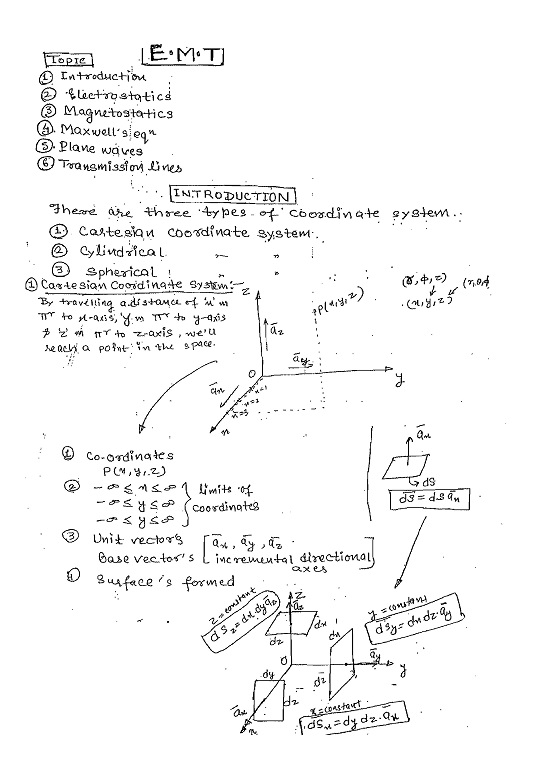 E.M.T
Topic
① Introduction
② Electrostatics
③ Magnetostatics
④ Maxwell's eqn
⑤ Plane waves
⑥ Transmission lines
INTRODUCTION
There are three types of coordinate system.
① Cartesian coordinate system.
② Cylindrical " "
③ Spherical " "
① Cartesian Coordinate System:-
By travelling a distance of 'x' m
πr to x-axis, 'y' m πr to y-axis
& 'z' m πr to z-axis, we'll
reach a point in the space.
Z
P(x,y,z)
(r, φ, z)
(x,y,z)
āz
āy
O
y
āx
x=1
x=2
x=3
x
① Co-ordinates
P(x,y,z)
② -∞ ≤ x ≤ ∞
-∞ ≤ y ≤ ∞
-∞ ≤ y ≤ ∞
limits of
coordinates
③ Unit vectors
Base vector's
[āx, āy, āz
incremental directional
axes]
④ Surface's formed
ān
ds
d̄s = ds ān
z = constant
d̄sz = dx.dy āz
y = constant
d̄sy = dx dz.āy
Z
āz
dx
dz
dx
O
dz
āy
y
dy
dz
āx
x
x = constant
d̄sx = dy dz.āx